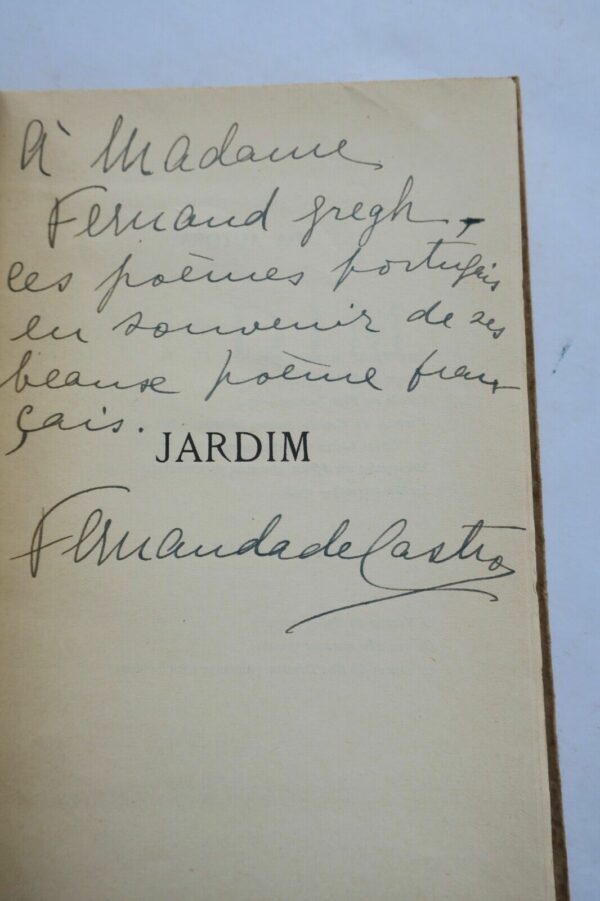 À Madame
Fernand Gregh,
ces poèmes portugais
en souvenir de ses
beaux poème fran-
çais.
JARDIM
Fernanda de Castro